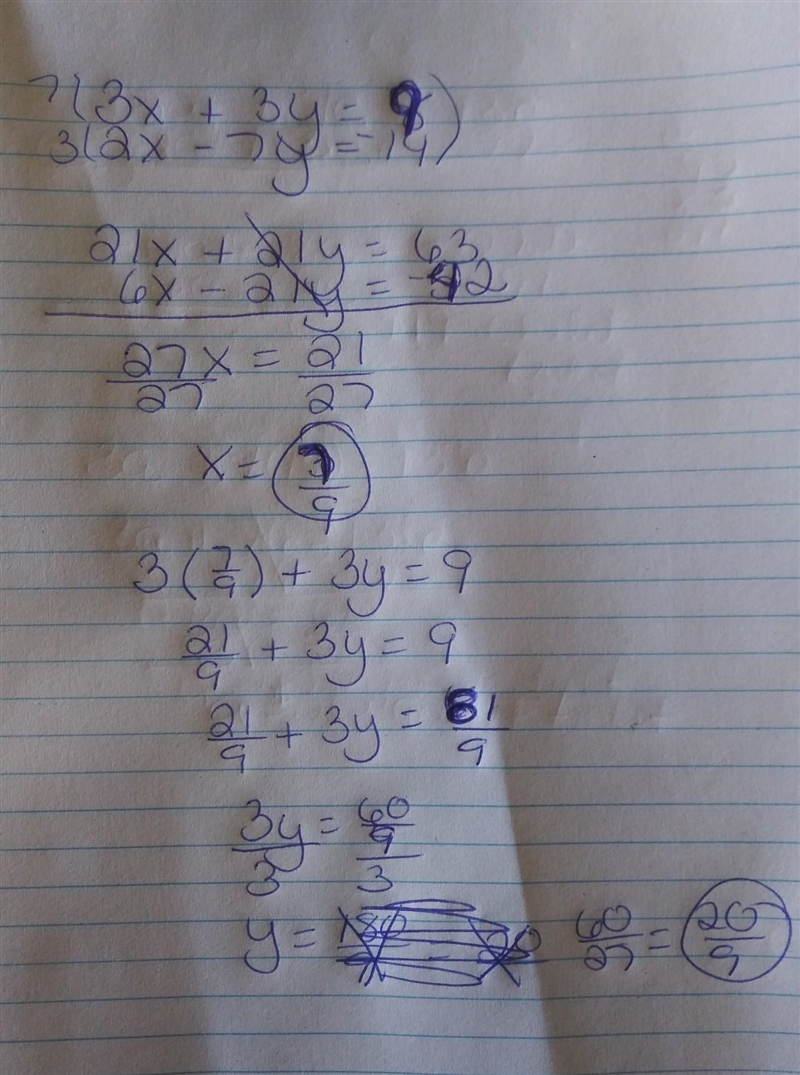 7(3x + 3y = 9)
3(2x - 7y = -14)
21x + 21y = 63
6x - 21y = -42
27x/27 = 21/27
x = 7/9
3(7/9) + 3y = 9
21/9 + 3y = 9
21/9 + 3y = 81/9
3y/3 = 60/9/3
y = 60/27 = 20/9